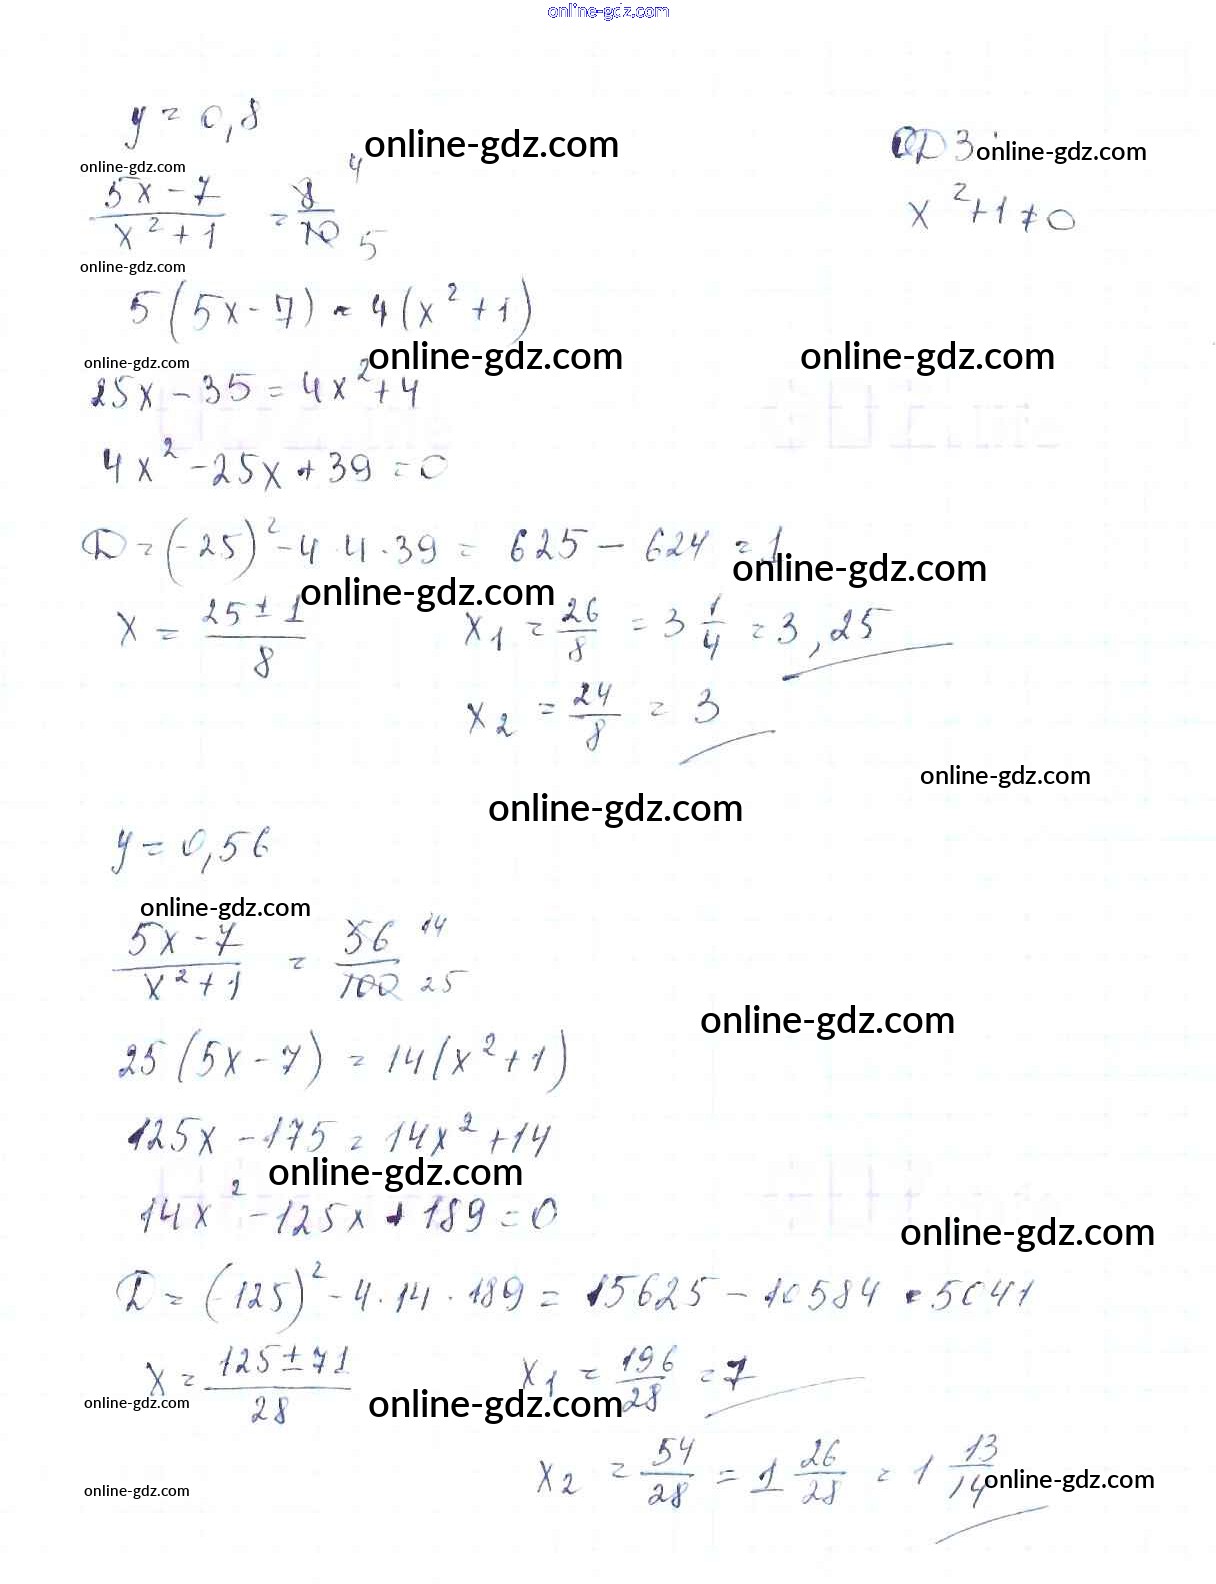 online-gdz.com
y = 0,8
online-gdz.com
ОДЗ online-gdz.com
online-gdz.com
(5x - 7)/(x² + 1) = 8/10 4 5
x² + 1 ≠ 0
online-gdz.com
5(5x - 7) = 4(x² + 1)
online-gdz.com
online-gdz.com
online-gdz.com
25x - 35 = 4x² + 4
4x² - 25x + 39 = 0
D = (-25)² - 4 · 4 · 39 = 625 - 624 = 1
online-gdz.com
online-gdz.com
x = (25 ± 1)/8 x₁ = 26/8 = 3 1/4 = 3,25
x₂ = 24/8 = 3
online-gdz.com
online-gdz.com
y = 0,56
online-gdz.com
(5x - 7)/(x² + 1) = 56/100 14 25
online-gdz.com
25(5x - 7) = 14(x² + 1)
125x - 175 = 14x² + 14
online-gdz.com
14x² - 125x + 189 = 0
online-gdz.com
D = (-125)² - 4 · 14 · 189 = 15625 - 10584 = 5041
x = (125 ± 71)/28 x₁ = 196/28 = 7
online-gdz.com
online-gdz.com
x₂ = 54/28 = 1 26/28 = 1 13/14
online-gdz.com
online-gdz.com